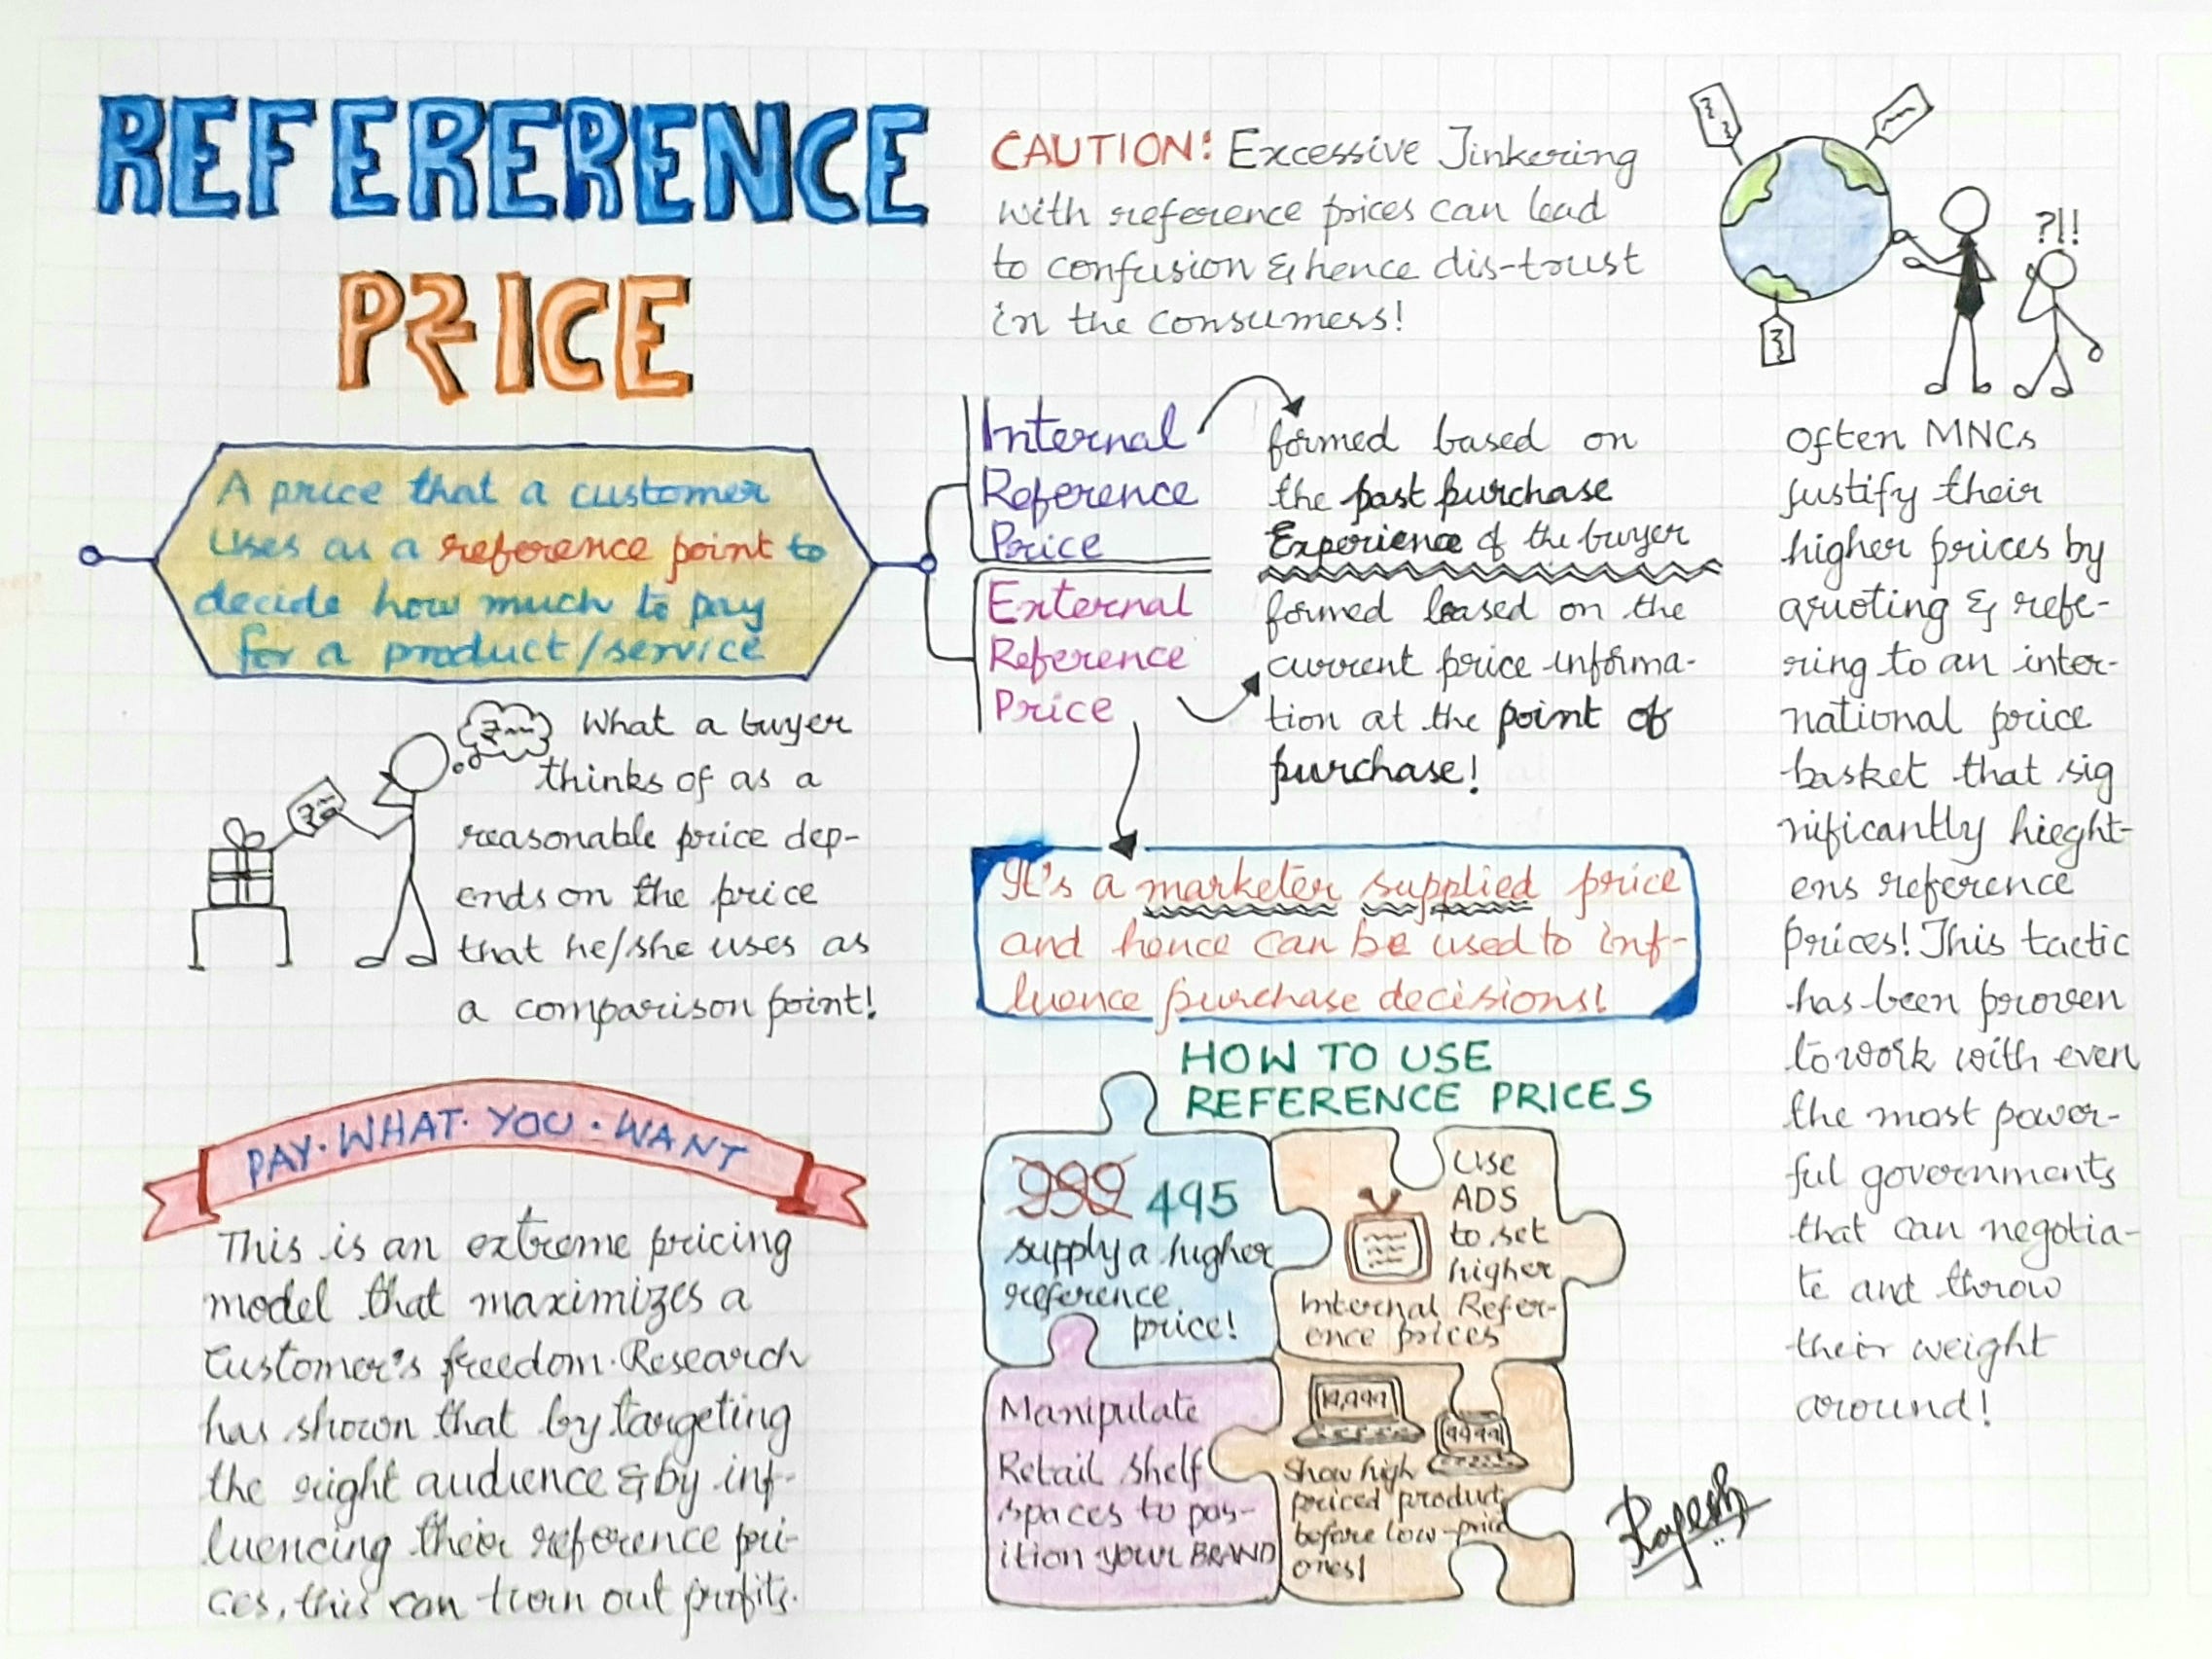 REFERERENCE
P₹ICE
A price that a customer
uses as a reference point to
decide how much to pay
for a product/service
What a buyer
thinks of as a
reasonable price dep-
ends on the price
that he/she uses as
a comparison point!
PAY·WHAT·YOU·WANT
This is an extreme pricing
model that maximizes a
customer's freedom. Research
has shown that by targeting
the right audience & by inf-
luencing their reference pri-
ces, this can turn out profits.
CAUTION: Excessive Tinkering
with reference prices can lead
to confusion & hence dis-trust
in the consumers!
Internal
Reference
Price
formed based on
the past purchase
Experience of the buyer
External
Reference
Price
formed based on the
current price informa-
tion at the point of
purchase!
It's a marketer supplied price
and hence can be used to inf-
luence purchase decisions!
HOW TO USE
REFERENCE PRICES
999 495
supply a higher
reference
price!
Use
ADS
to set
higher
Internal Refer-
ence prices
Manipulate
Retail shelf
spaces to pos-
ition your BRAND
19,999
9999
Show high
priced product
before low-price
ones!
?!!
Often MNCs
justify their
higher prices by
quoting & refe-
ring to an inter-
national price
basket that sig
nificantly hieght-
ens reference
prices! This tactic
has been proven
to work with even
the most power-
ful governments
that can negotia-
te and throw
their weight
around!
Rajesh